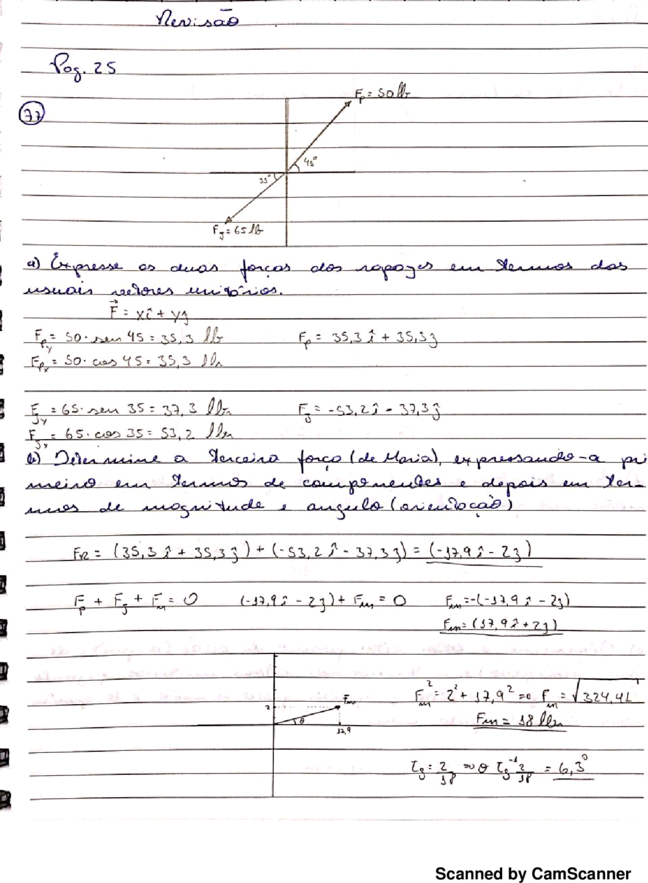 Revisão
Pag. 25
77
Fp = 50 lb
45°
35°
FJ = 65 lb
a) Expresse as duas forças dos rapazes em termos dos
usuais vetores unitários.
F⃗ = xî + yĵ
Fpy = 50 · sen 45 = 35,3 lb Fp = 35,3 î + 35,3 ĵ
Fpx = 50 · cos 45 = 35,3 lb
FJy = 65 · sen 35 = 37,3 lb FJ = -53,2 î - 37,3 ĵ
FJx = 65 · cos 35 = 53,2 lb
b) Determine a terceira força (de Maria), expressando-a pri
meiro em termos de componentes e depois em ter-
mos de magnitude e angulo (orientação)
FR = (35,3 î + 35,3 ĵ) + (-53,2 î - 37,3 ĵ) = (-17,9 î - 2ĵ)
Fp + FJ + Fm = 0 (-17,9 î - 2ĵ) + Fm = 0 Fm = -(-17,9 î - 2ĵ)
Fm = (17,9 î + 2ĵ)
Fm² = 2² + 17,9² => Fm = √324,41
2 Fm
θ 17,9
Fm = 18 lb
Tg = 2/18 => θ Tg⁻¹ 2/18 = 6,3°
Scanned by CamScanner